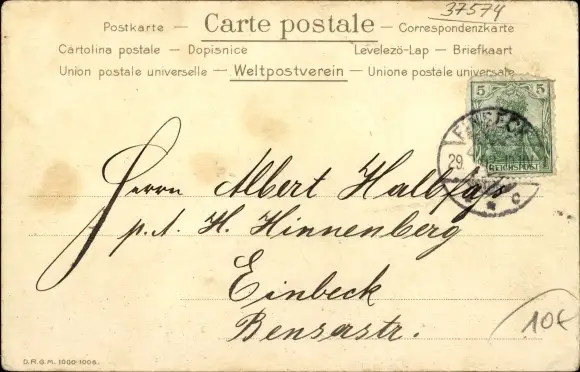 37574
Postkarte — Carte postale — Correspondenzkarte
Cartolina postale — Dopisnice Levelezö-Lap — Briefkaart
Union postale universelle — Weltpostverein — Unione postale universale
5 5
REICHSPOST
EINBECK
29.
c
Herrn Albert Halbfaß
p. A. H. Hinnenberg
Einbeck
Benserstr.
10€
D.R.G.M. 1000-1006.